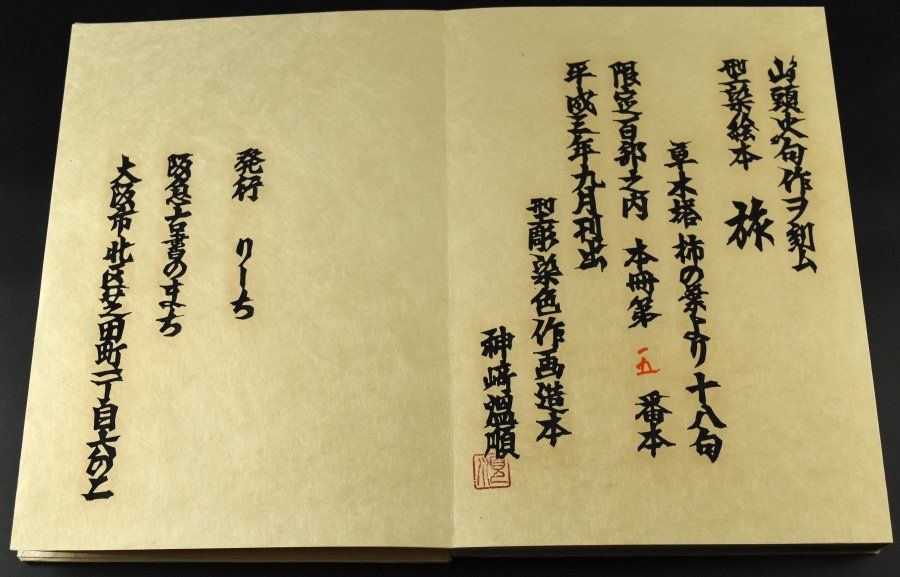 山頭火句作ヲ刻ム
型染絵本 旅
草木塔 柿の葉より十八句
限定百部之内 本冊第 五 番本
平成三年九月刊出
型彫染色作画造本
神崎温順
発行 りーち
阪急古書のまち
大阪市北区芝田町一丁目六の二